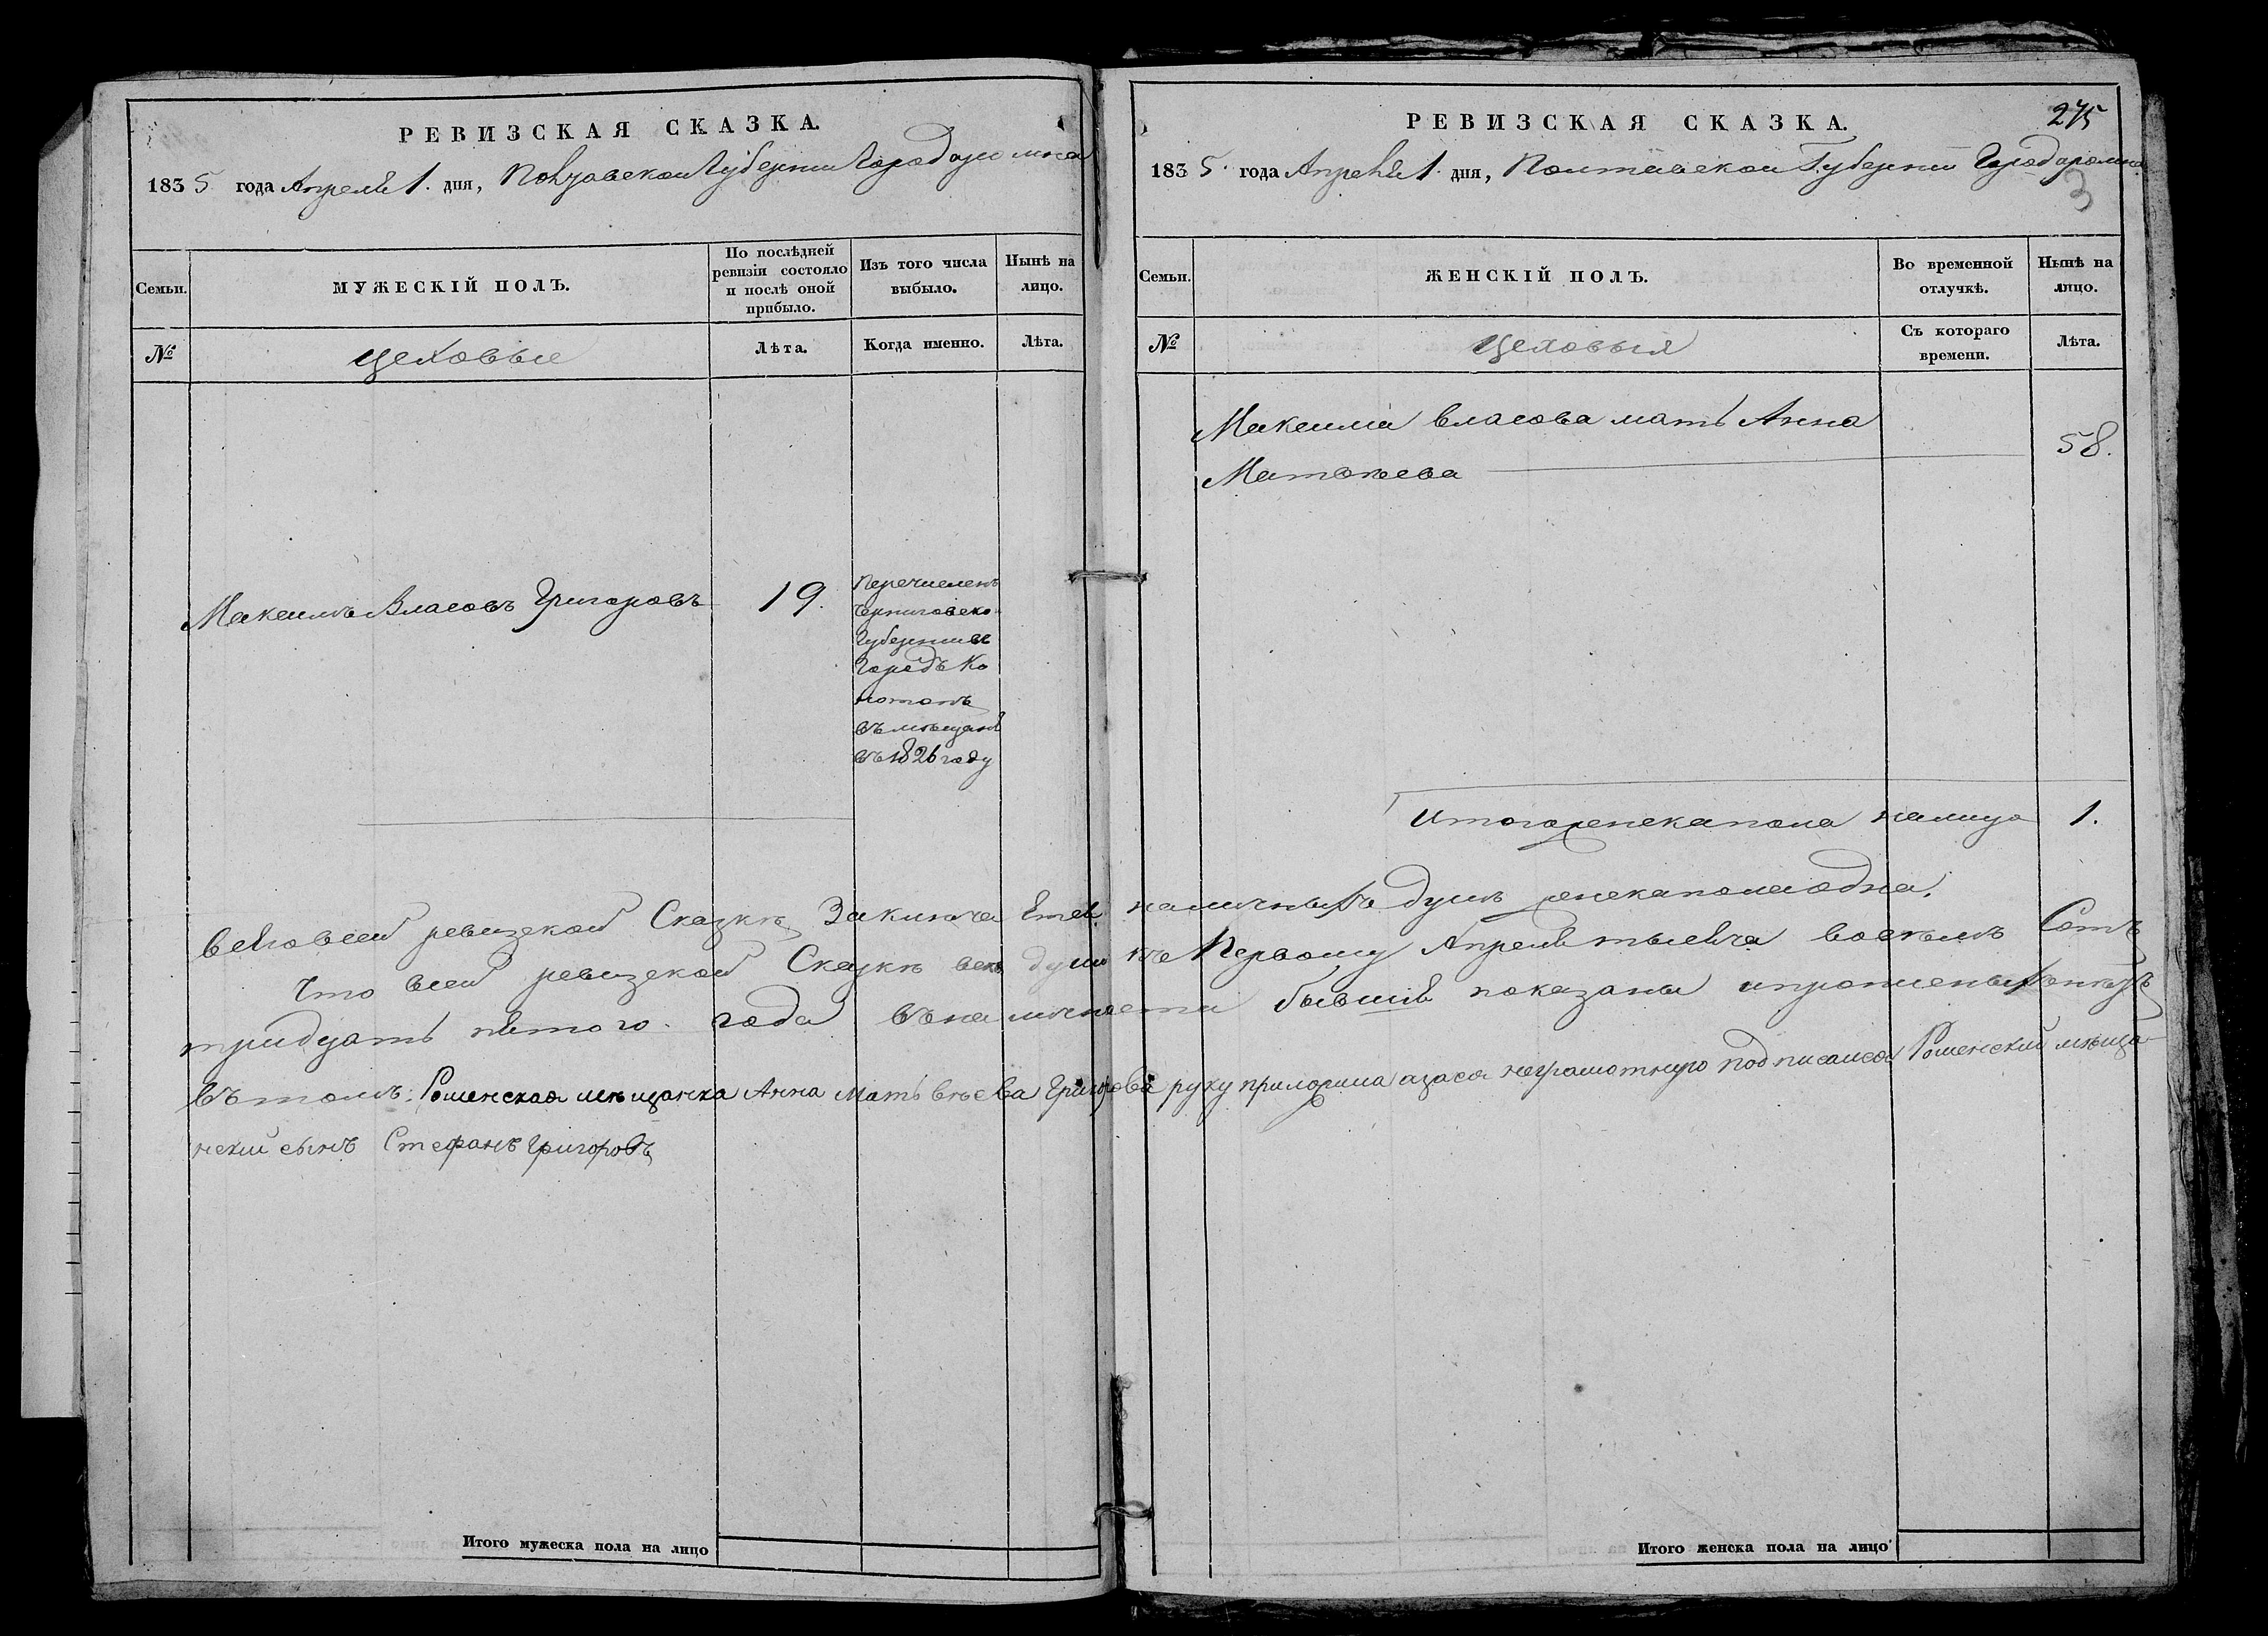 РЕВИЗСКАЯ СКАЗКА.
1835 года Апреля 1. дня, Полтавской Губернии Города ромна
Семьи.
МУЖЕСКІЙ ПОЛЪ.
По послѣдней ревизіи состояло и послѣ оной прибыло.
Изъ того числа выбыло.
Нынѣ на лицо.
№
цеховые
Лѣта.
Когда именно.
Лѣта.
Максимъ Власовъ Григоровъ
19.
Перечисленъ
Черниговско
Губернии въ
Городъ Ко
нотопъ
въ мещане
въ 1826 году
Итого мужеска пола на лицо
275
РЕВИЗСКАЯ СКАЗКА.
1835 года Апреля 1 дня, Полтавской Губернии Города ромна
3
Семьи.
ЖЕНСКІЙ ПОЛЪ.
Во временной отлучкѣ.
Нынѣ на лицо.
№
Цеховыя
Съ котораго времени.
Лѣта.
Максима Власова мать Анна
Матвѣева
58.
Итого женска пола налицо 1.
Всего всей ревизской Сказкѣ Заключается наличныхъ душъ женска пола одна.
Что всей ревизской Сказкѣ всѣ души къ Первому Апреля тысяча восемь Сотъ
тридцать пятого года въ наличности бывшія показаны
въ томъ: Роменская мѣщанка Анна Матьвѣева Григорова руку приложила а за ея неграмотную подписался Роменский мѣща-
нский сынъ Стефанъ Григоровъ
Итого женска пола на лицо